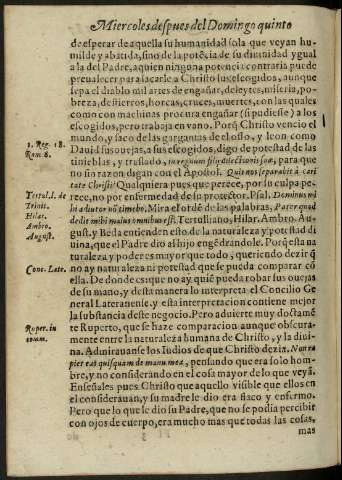 Miercoles despues del Domingo quinto
de esperar de aquella su humanidad sola que veyan hu-
milde y abatida, sino de la potẽcia de su diuinidad ygual
a la del Padre, a quien ninguna potencia contraria puede
preualecer para sacarle a Christo sus escogidos, aunque
sepa el diablo mil artes de engañar, deleytes, miseria, po-
breza, destierros, horcas, cruces, muertes, con las quales
como con machinas procura engañar (si pudiesse) a los
escogidos, pero trabaja en vano. Porq̃ Christo vencio el
1. Reg. 18.
mundo, y saco de las gargantas del osso, y leon como
Rom. 8.
Dauid sus ouejas, a sus escogidos, digo de potestad de las
tinieblas, y traslado, in regnum filij dilectionis suæ, para que
no sin razon dagan con el Apostol. Quis nos separabit à cari
tate Christi? Qualquiera pues que perece, por su culpa pe-
Tertul. l. de
rece, no por enfermedad de le protector. Psal. Dominus mi
Trinit.
hi adiutor nõ timebo. Mira el ordẽ de las palabras, Pater quod
Hilar.
dedit mihi maius omnibus est. Tertulliano, Hilar. Ambro. Au-
Ambro.
gust. y Beda entienden esto de la naturaleza y potestad di
August.
uina, que el Padre dio al hijo engẽdrandole. Porq̃ esta na
turaleza y poder es mayor que todo, queriendo dezir q̃
Conc. Late.
no ay naturaleza ni potestad que se pueda comparar cõ
ella. De donde es que no ay quiẽ pueda robar sus ouejas
de su mano, y desta manera lo interpreta el Concilio Ge
neral Lateranense, y esta interpretacion contiene mejor
la substancia deste negocio. Pero aduierte muy doctamẽ
Ruper. in
te Ruperto, que se haze comparacion aunque obscura-
ioann.
mente entre la naturaleza humana de Christo, y la diui-
na. Admirauanse los Iudios de que Christo dezia. Non ra
piet eas quisquam de manu mea, pensando que era solo hom-
bre, y no considerando en el cosa mayor de lo que veyã.
Enseñales pues Christo que aquello visible que ellos en
el considerauan, y su madre le dio era flaco y enfermo.
Pero que lo que le dio su Padre, que no se podia percibir
con ojos de cuerpo, era mucho mas que todas las cosas,
mas